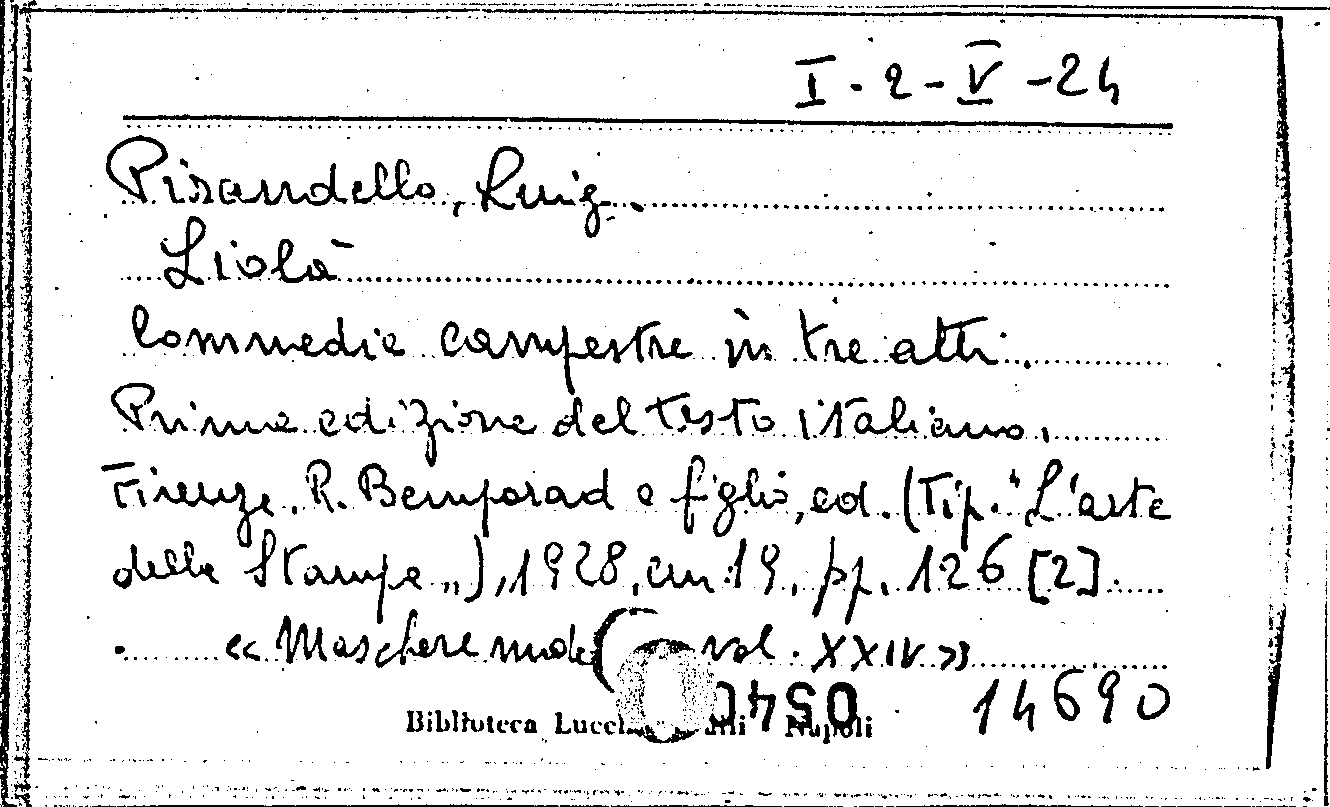 I. 2 - V - 24
Pirandello, Luigi.
Liolà
Commedia campestre in tre atti.
Prima edizione del testo italiano.
Firenze. R. Bemporad e figlio, ed. (Tip. "L'arte
della Stampa„), 1928, cm. 19, pp. 126 [2].
« Maschere vol. XXIV »
14690
Biblioteca Napoli